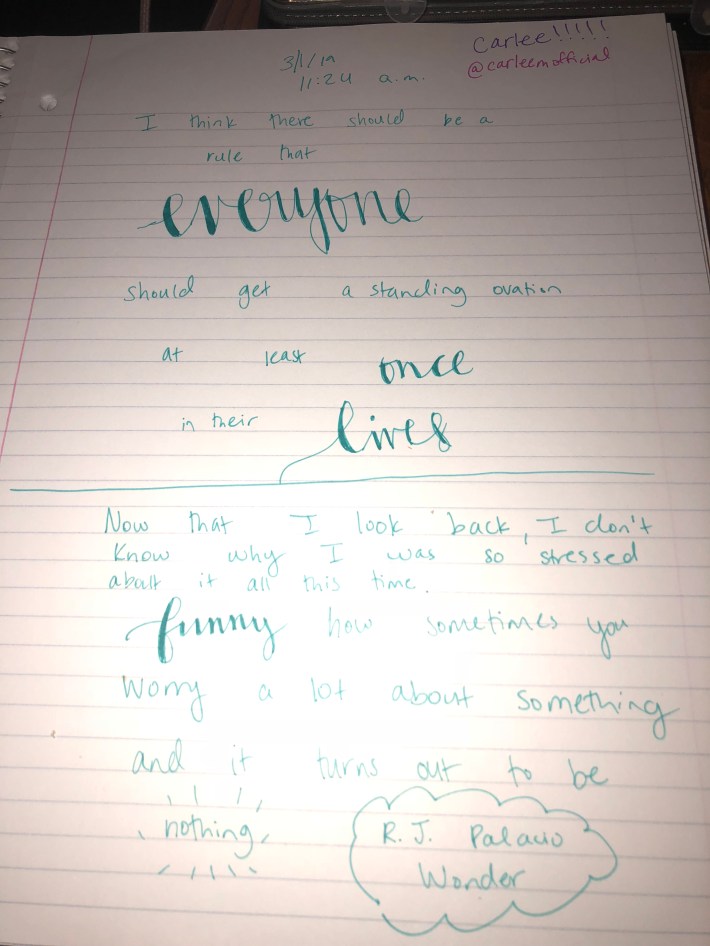 Carlee!!!!!
@carleemofficial
3/1/19
11:24 a.m.
I think there should be a
rule that
everyone
should get a standing ovation
at least once
in their lives
Now that I look back, I don't
know why I was so stressed
about it all this time.
funny how sometimes you
worry a lot about something
and it turns out to be
nothing
R. J. Palacio
Wonder